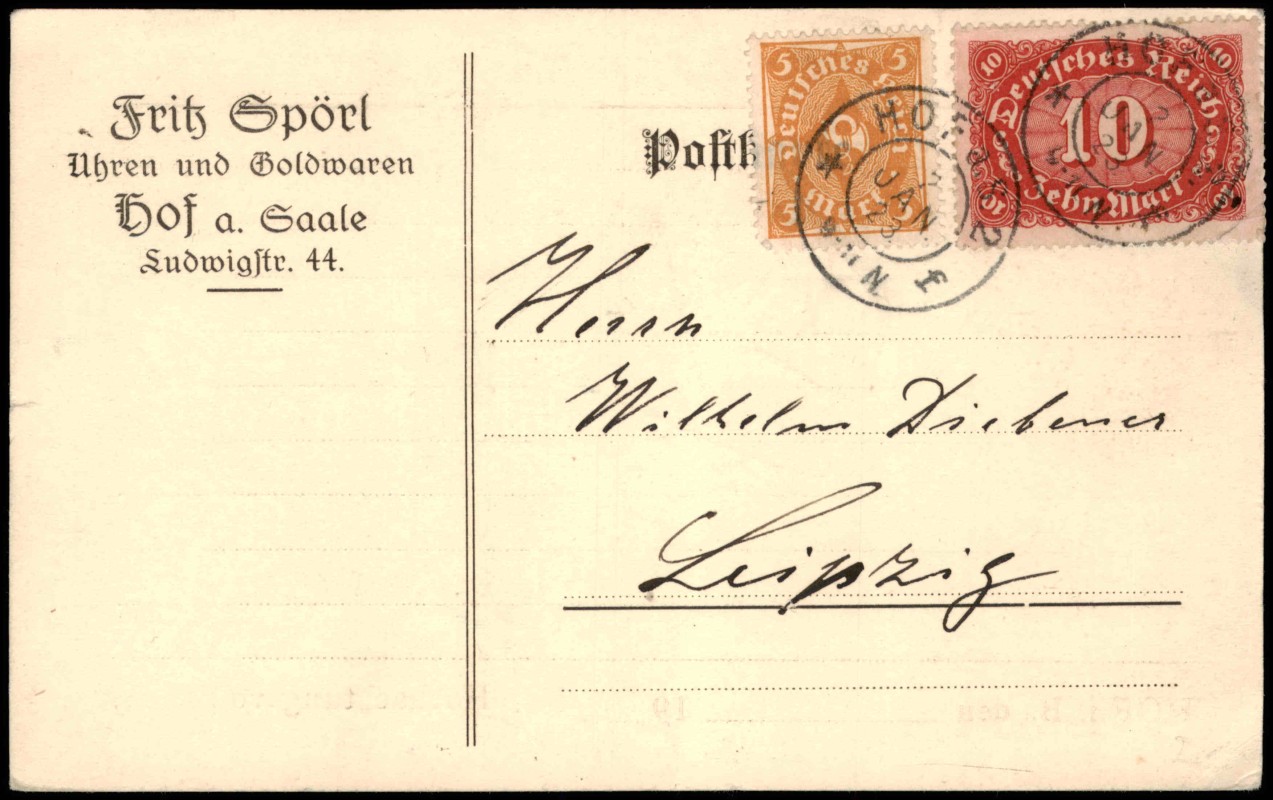 Fritz Spörl
Uhren und Goldwaren
Hof a. Saale
Ludwigstr. 44.
Postk
5 5
Deutsches Reich
5 5
mark
10 10
Deutsches Reich
10
10
Zehn Mark
HOF 2
3
JAN
23
N
f
HOF
3
JAN
Herrn
Wilhelm Diebener
Leipzig
19